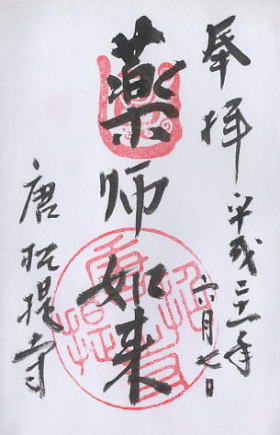 奉拝
平成二十一年
六月七日
薬師如来
唐招提寺